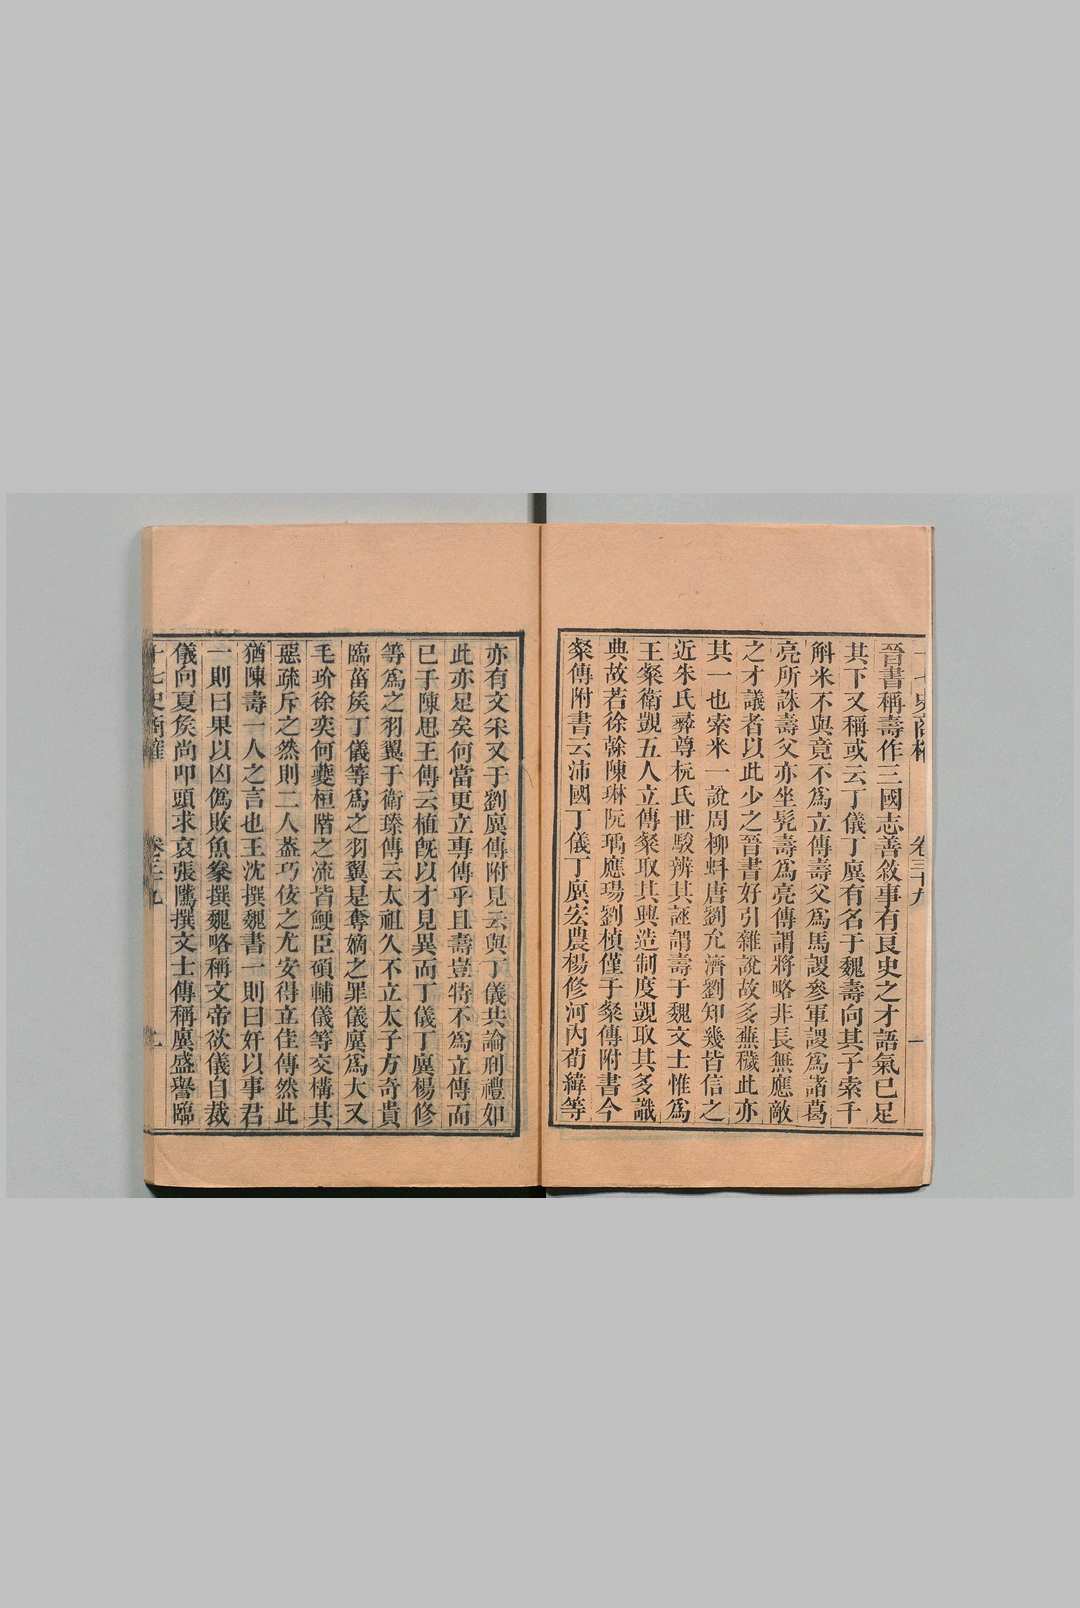 晉書稱壽作三國志善敘事有良史之才語氣已足
其下又稱或云丁儀丁廙有名于魏壽向其子索千
斛米不與竟不爲立傳壽父爲馬謖參軍謖爲諸葛
亮所誅壽父亦坐髠壽爲亮傳謂將略非長無應敵
之才議者以此少之晉書好引雜說故多蕪穢此亦
其一也索米一說周柳虯唐劉允濟劉知幾皆信之
近朱氏彝尊杭氏世駿辨其誣謂壽于魏文士惟爲
王粲衛覬五人立傳粲取其興造制度覬取其多識
典故若徐幹陳琳阮瑀應瑒劉楨僅于粲傳附書今
粲傳附書云沛國丁儀丁廙宏農楊修河內荀緯等
亦有文采又于劉廙傳附見云與丁儀共論刑禮如
此亦足矣何當更立專傳乎且壽豈特不爲立傳而
已于陳思王傳云植旣以才見異而丁儀丁廙楊修
等爲之羽翼于衛臻傳云太祖久不立太子方奇貴
臨菑矦丁儀等爲之羽翼是奪嫡之罪儀廙爲大又
毛玠徐奕何夔桓階之流皆鯁臣碩輔儀等交構其
惡疏斥之然則二人葢巧佞之尤安得立佳傳然此
猶陳壽一人之言也王沈撰魏書一則曰奸以事君
一則曰果以凶僞敗魚豢撰魏略稱文帝欲儀自裁
儀向夏矦尚叩頭求哀張騭撰文士傳稱廙盛譽臨
十七史商榷 卷三十九